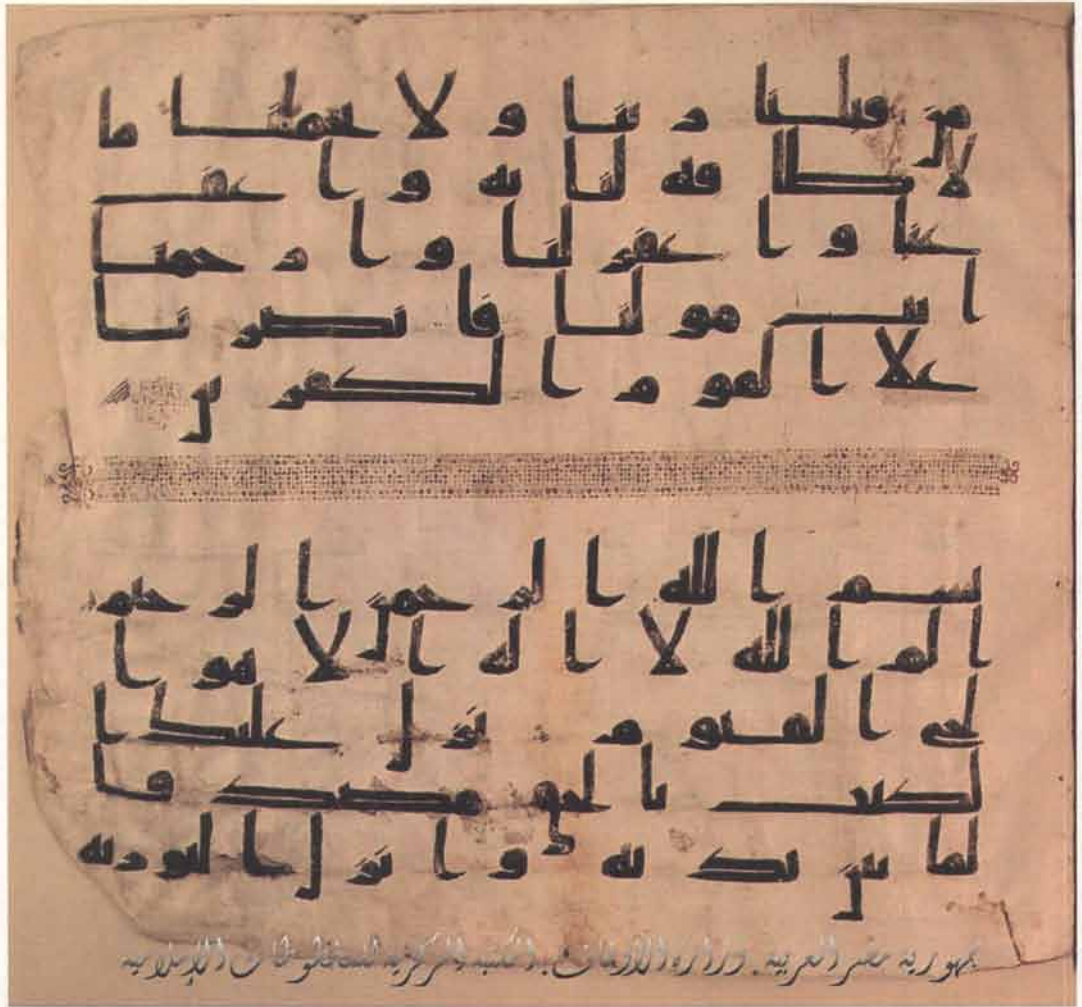 من قبلنا ربنا و لا تحملنا ما
لا طاقه لنا به و ا عف
عنا و ا غفر لنا و ا ر حمنا
ا نت مولنا فا نصر نا
علا ا لقو م ا لكفر ين
بسم ا لله ا لر حمن ا لر حيم
ا لم ا لله لا ا له ا لا هو ا
لحي ا لقيو م نز ل عليك ا
لكتب با لحق مصد قا
لما بين يد يه و ا نز ل ا لتور يه
جمهورية مصر العربية . وزارة الأوقاف . المكتبة المركزية للمخطوطات الإسلامية